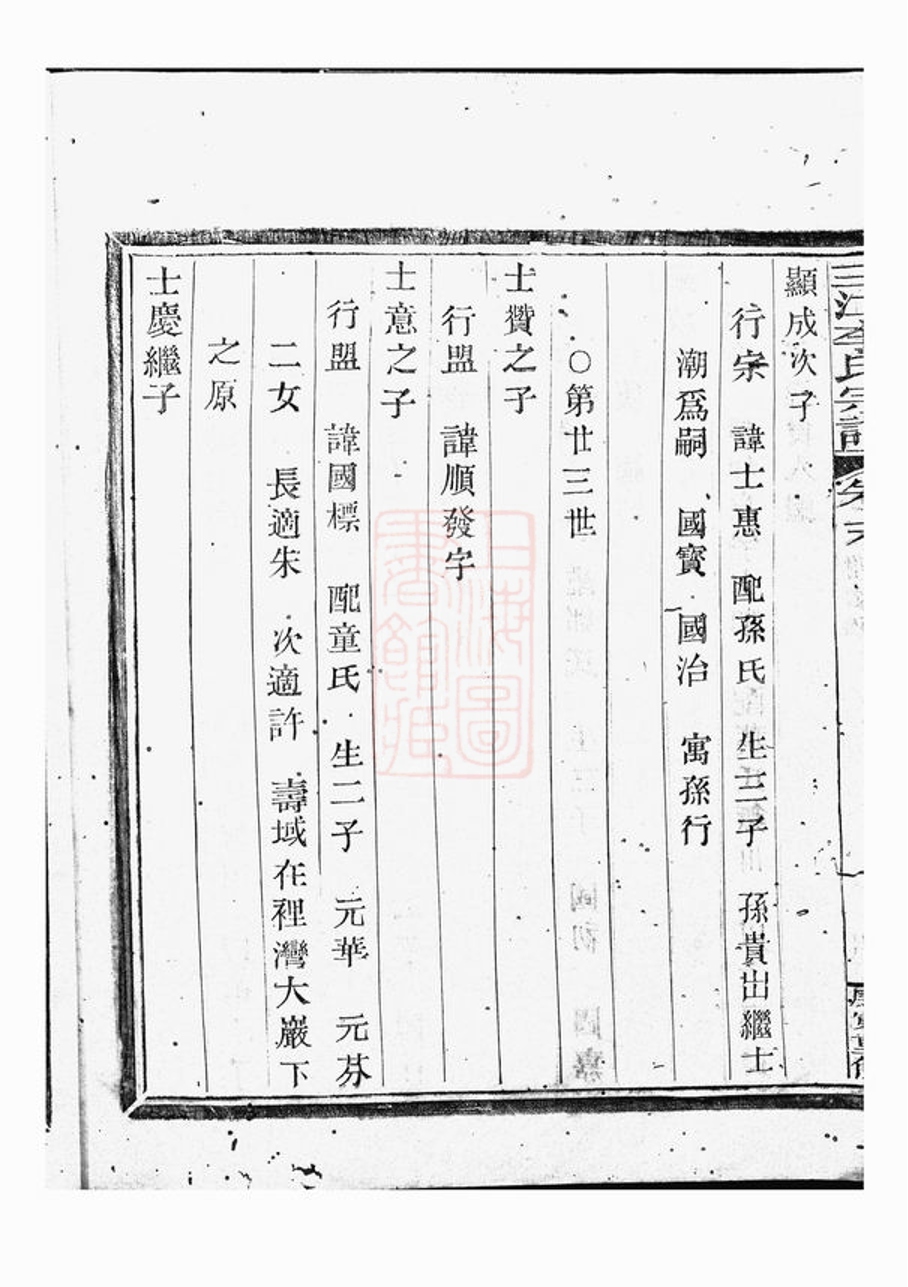 顯成次子
行宗　諱士惠　配孫氏　生三子　孫貴出繼士
潮爲嗣　國寶　國治　寓孫行
○第廿三世
士贊之子
行盟　諱順發字
士意之子
行盟　諱國標　配童氏　生二子　元華　元芬
二女　長適朱　次適許　壽域在裡灣大巖下
之原
士慶繼子
上海圖書館藏